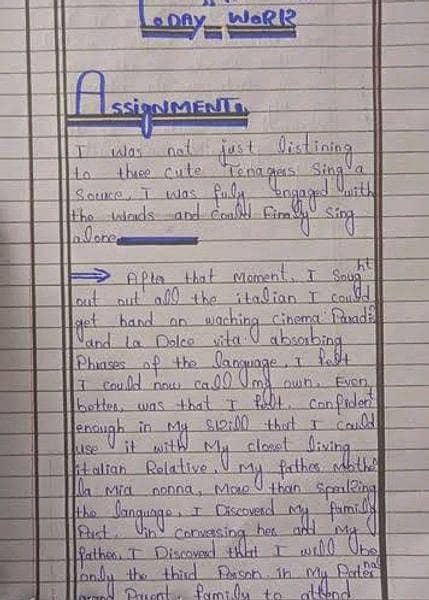 Today Work
Assignment
I was not just listining
to three cute Tenagers Sing a
Source, I was fuly engaged with
the words and could Finally Sing
alone
⇒ After that moment, I Sought
out out all the italian I could
get hand on waching cinema Paradi
and La Dolce vita absorbing
Phrases of the language, I felt
I could now call my own. Even
better, was that I felt confident
enough in My skill that I could
use it with My closet living
italian Relative, My father Mothe
la mia nonna, More than Speaking
the language, I Discoverd My family
Past, in conversing her and My
father, I Discoverd that I will be
only the third Person in My Paternal
Parent family to attend